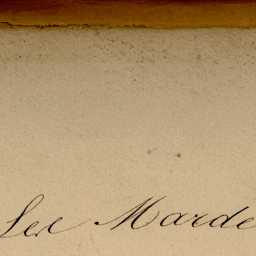 Les Marde